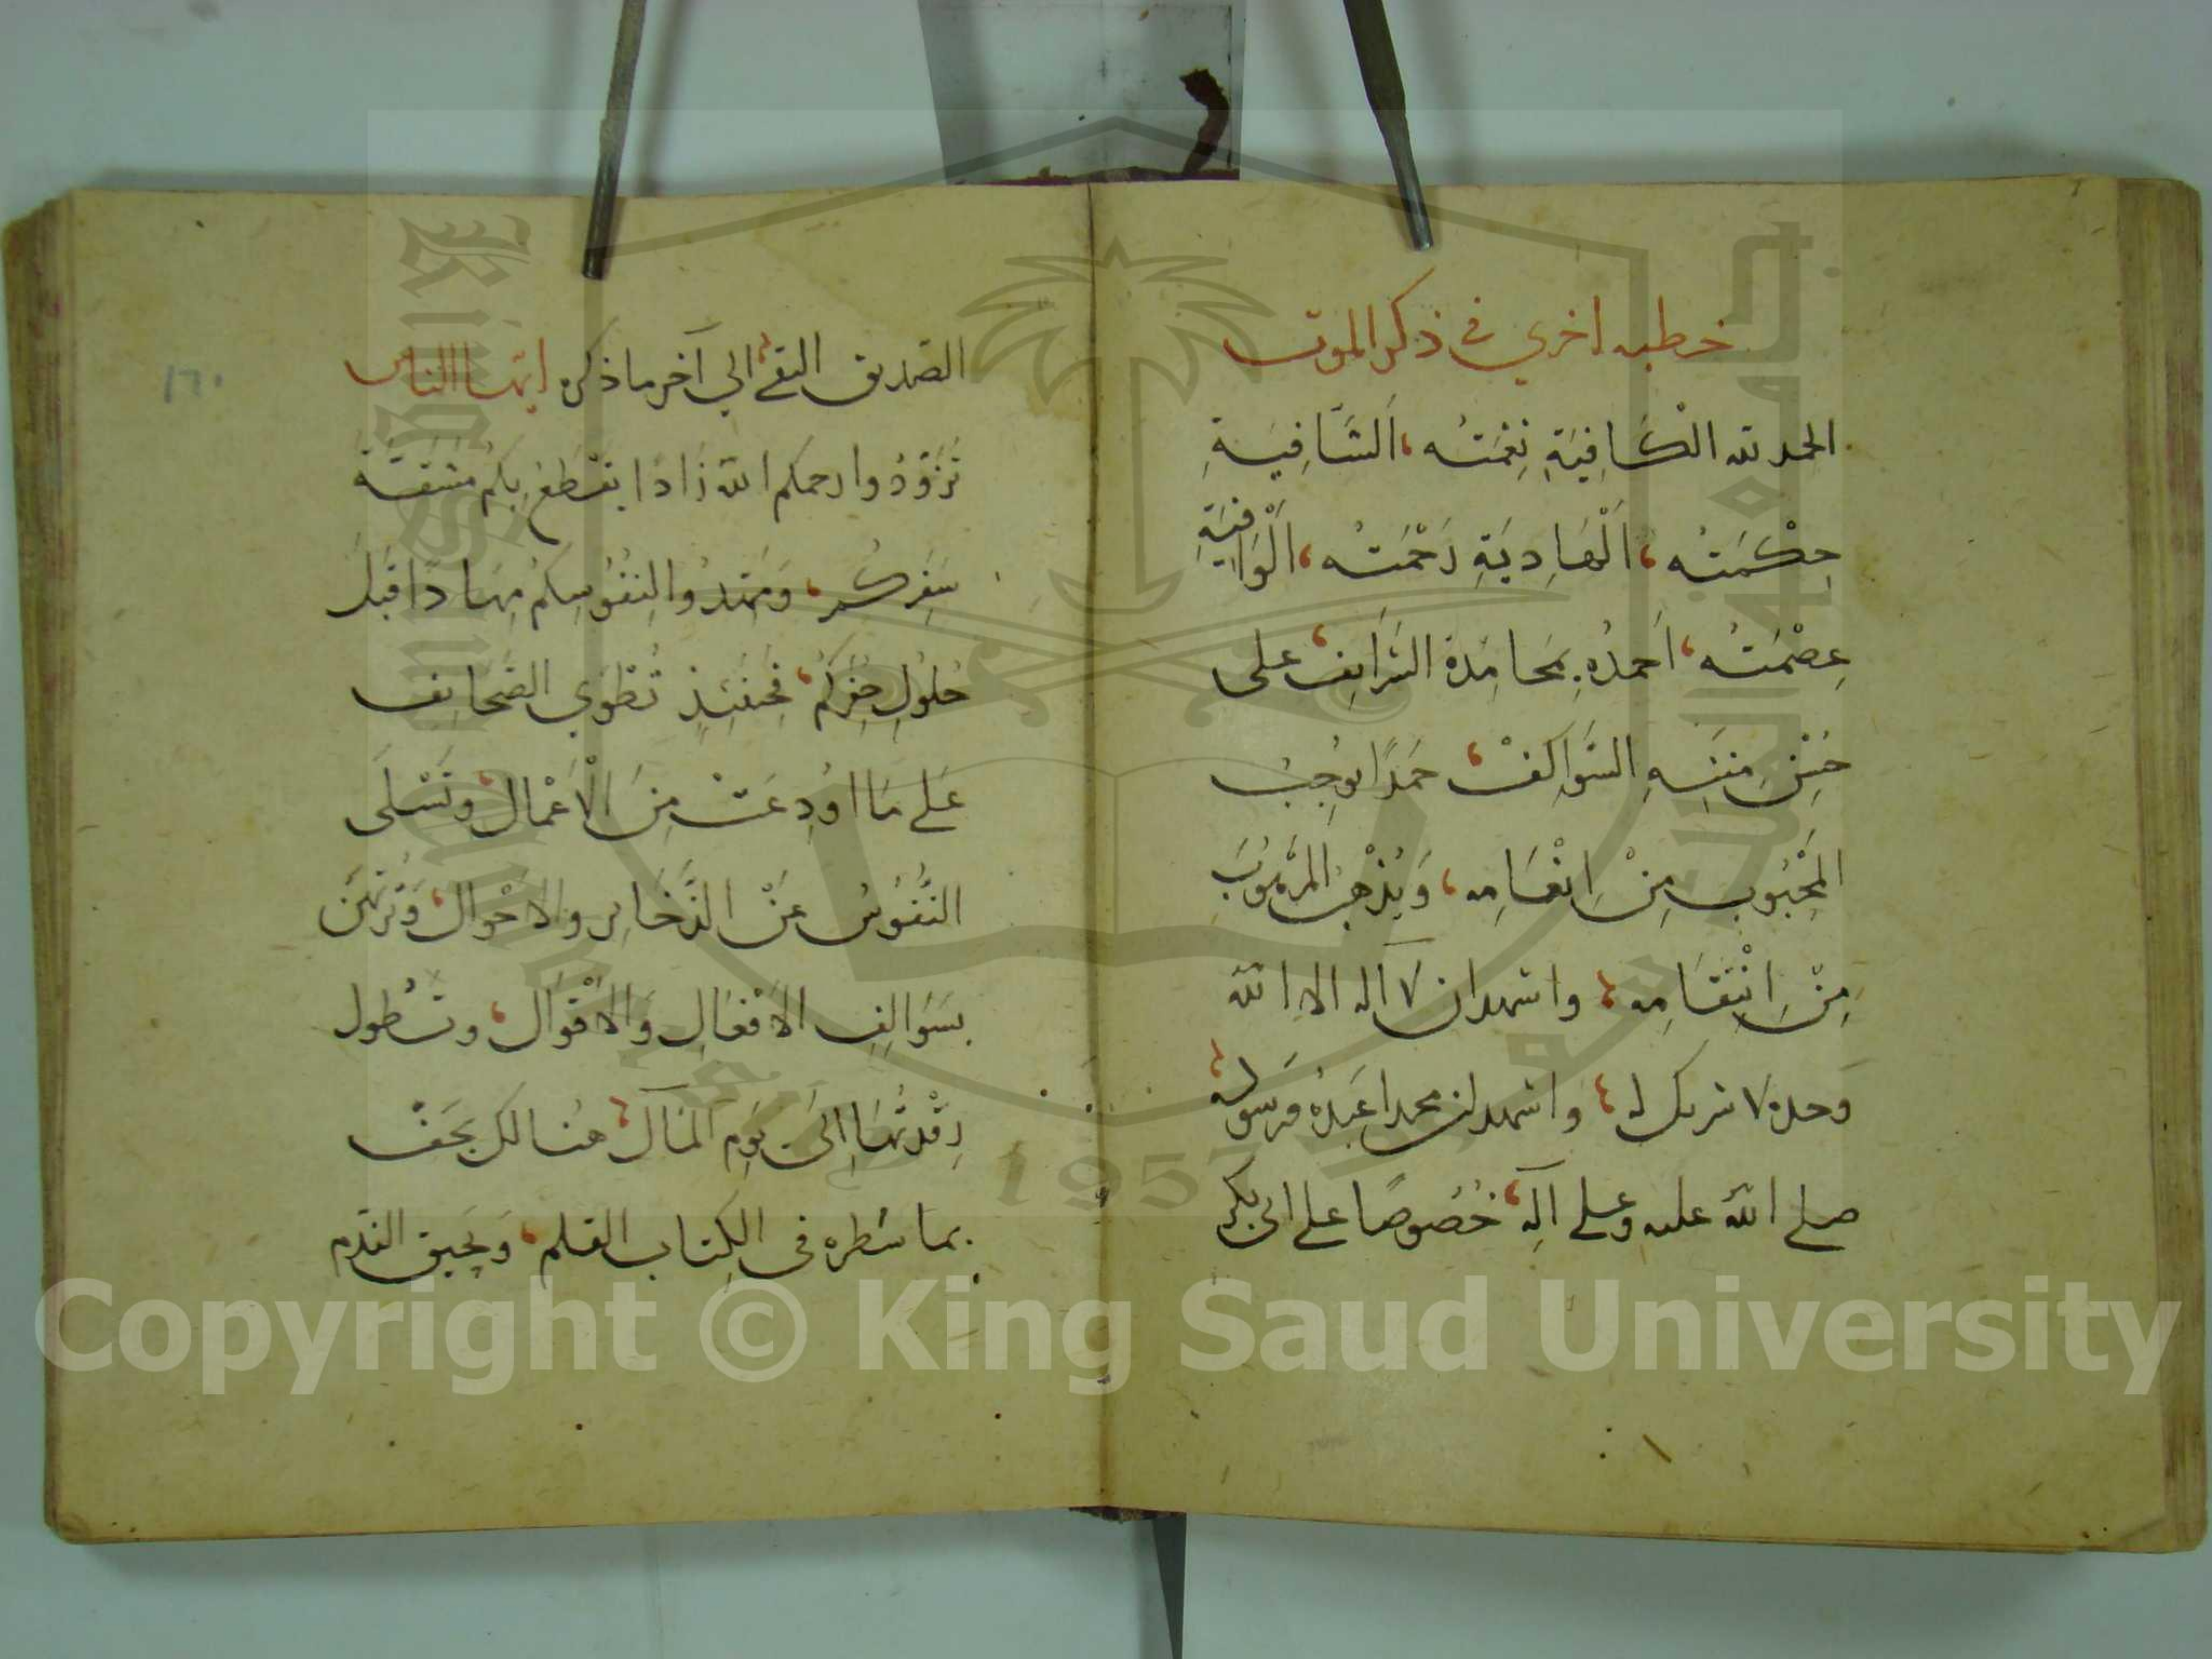 خطبه اخري في ذكر الموت
الحمد لله الْكَافِيَةِ نِعْمَتُه، اَلشَّافِيَةِ
حِكْمَتُه، اَلْهَادِيَةِ رَحْمَتُه، اَلْوَافِيَةِ
عِصْمَتُه، اَحمدُه بِمَحامِدة على
مِنَنِهِ السَّوَاكِفْ، حَمَدًا يُوجِبُ
المَحْبُوب مِنْ اِنْعَامِه، وَيُذْهِبُ المَرْهُوبَ
مِنْ اِنْتِقَامِه، واشهد ان لا اله الا الله
وَحده لا شريك له، وَاشهد ان محمدا عَبدُه وَرَسوله
صلى الله عليه وعلى آلِه، خُصُوصًا على ابي بكر
الصديق التقي، الي آخر ما ذكره ايها الناس
تَزَوَّدُوا رحمكم الله زَادًا يَقْطَع بِكُم مَشَقَّةَ
سَفَرِكُم، وَمَهّدُوا لِنفُوسِكم مِهادًا قَبلَ
حُلُولِ حُفَرِكُم، فَحِينَئِذٍ تُطْوَي الصَّحايف
عَلى مَا اُودِعَتْ مِنَ الْاَعْمَال، وتَسْلَى
النُّفُوسُ عَنْ الذَّخَايِر والاَحْوال، وَتُرْتَهَن
بسَوَالِفِ الافْعَالِ وَالاقْوَال، وتَطُول
رِقْدَتُهَا اِلَى يَوم المآل، هُنالك يَجفّ
بما سَطره في الكِتاب القلم، وَيَحيق الندم
١٦٠
Copyright © King Saud University
1957